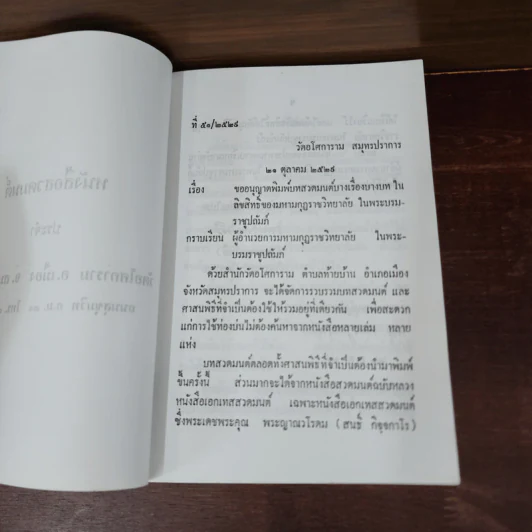 ที่ ๕๐/๒๕๒๔
วัดอโศการาม สมุทรปราการ
๒๑ ตุลาคม ๒๕๒๔
เรื่อง ขออนุญาตพิมพ์บทสวดมนต์บางเรื่องบางบท ใน
ลิขสิทธิ์ของมหามกุฏราชวิทยาลัย ในพระบรม-
ราชูปถัมภ์
กราบเรียน ผู้อำนวยการมหามกุฏราชวิทยาลัย ในพระ-
บรมราชูปถัมภ์
ด้วยสำนักวัดอโศการาม ตำบลท้ายบ้าน อำเภอเมือง
จังหวัดสมุทรปราการ จะได้จัดการรวบรวมบทสวดมนต์ และ
ศาสนพิธีที่จำเป็นต้องใช้ให้รวมอยู่ที่เดียวกัน เพื่อสะดวก
แก่การใช้ท่องบ่นไม่ต้องค้นหาจากหนังสือหลายเล่ม หลาย
แห่ง
บทสวดมนต์ตลอดทั้งศาสนพิธีที่จำเป็นต้องนำมาพิมพ์
ขึ้นครั้งนี้ ส่วนมากจะได้จากหนังสือสวดมนต์ฉบับหลวง
หนังสือเอกเทสสวดมนต์ เฉพาะหนังสือเอกเทสสวดมนต์
ซึ่งพระเดชพระคุณ พระญาณวโรดม (สนธิ์ กิจฺจกาโร)